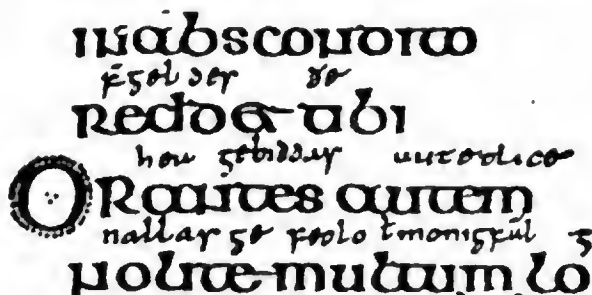 inabscondito
f̄geldes ðe
reddet tibi
gebiddas uutedlice
ORantes autem
nallas ge feolo ł
nolite multum lo